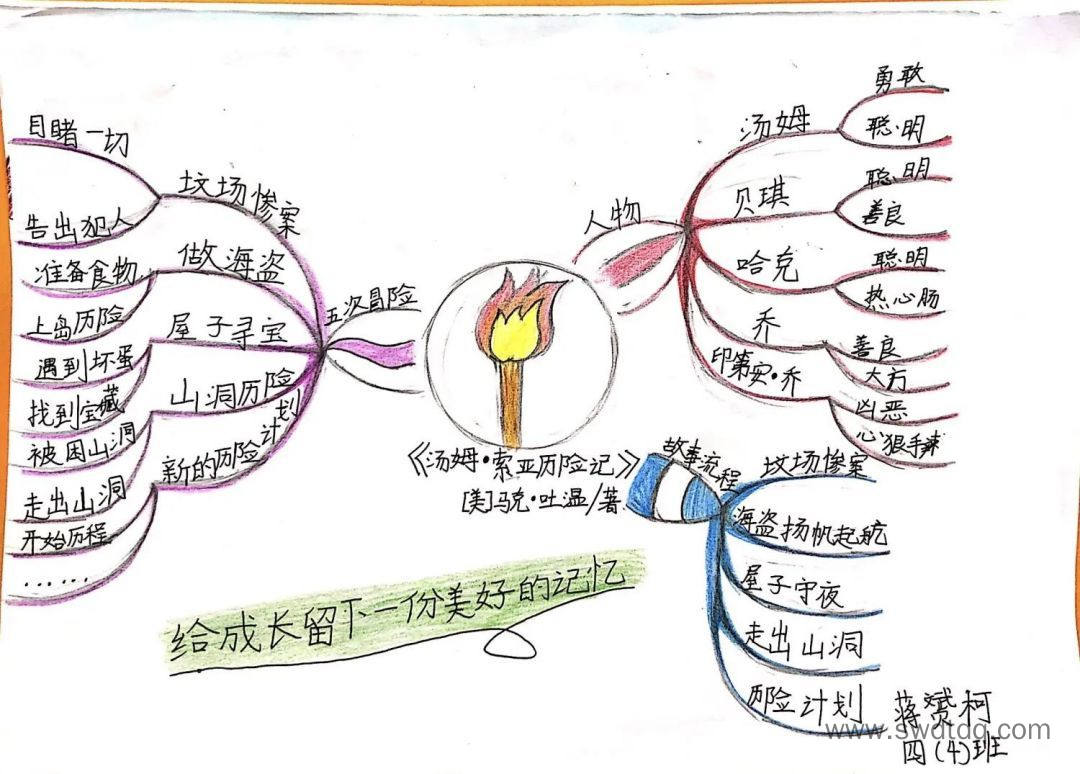 《汤姆·索亚历险记》
[美]马克·吐温/著
人物
汤姆
勇敢
聪明
贝琪
聪明
善良
哈克
聪明
热心肠
乔
善良
大方
印第安·乔
凶恶
心狠手辣
故事流程
坟场惨案
海盗扬帆起航
屋子守夜
走出山洞
历险计划
五次冒险
坟场惨案
目睹一切
告出犯人
做海盗
准备食物
上岛历险
屋子寻宝
遇到坏蛋
找到宝藏
山洞历险
被困山洞
走出山洞
新的历险计划
开始历程
……
给成长留下一份美好的记忆
蒋赟柯
四(4)班
www.swdtdq.com